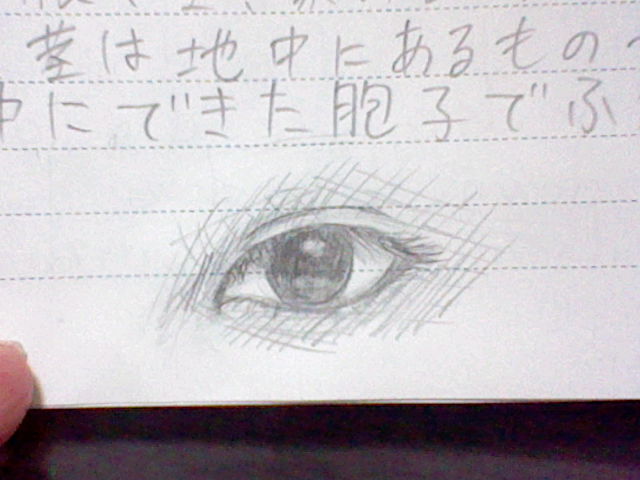 茎は地中にあるもの
中にできた胞子でふ